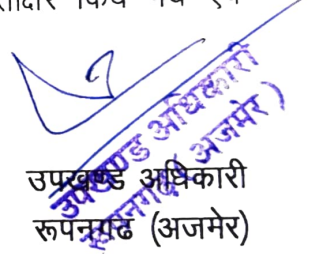 किये
उपखण्ड अधिकारी
रूपनगढ (अजमेर)
उपखण्ड अधिकारी
रूपनगढ़ (अजमेर)